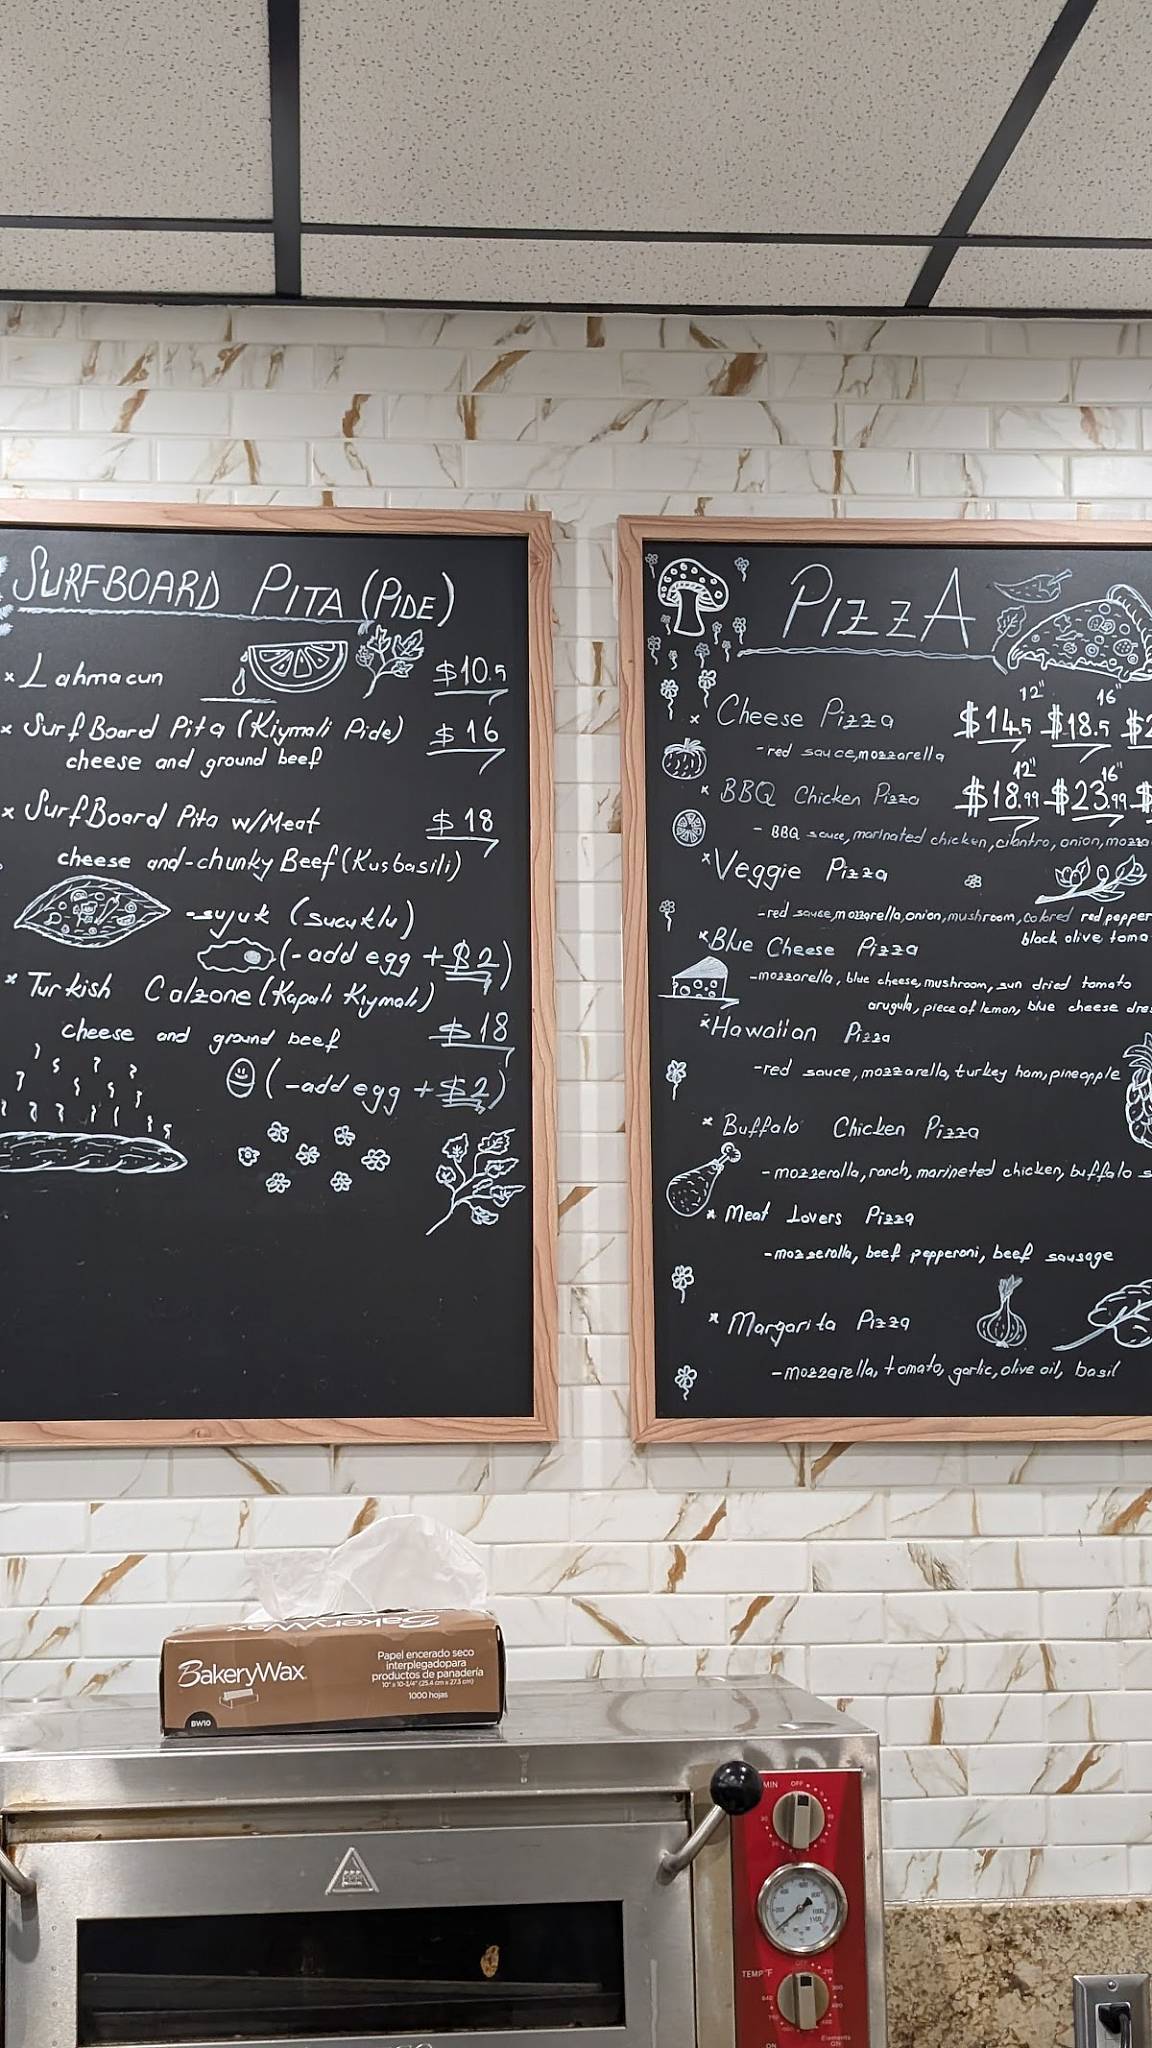 SURFBOARD PITA (PIDE)
× Lahmacun $10.5
× SurfBoard Pita (Kiymali Pide) $16
cheese and ground beef
× SurfBoard Pita w/Meat $18
cheese and-chunky Beef (Kusbasili)
-sujuk (sucuklu)
(-add egg + $2)
× Turkish Calzone (Kapalı Kıymalı)
cheese and ground beef $18
(-add egg + $2)
PIZZA
12" 16"
× Cheese Pizza $14.5 $18.5
-red sauce, mozzarella
12" 16"
× BBQ Chicken Pizza $18.99 $23.99
- BBQ sauce, marinated chicken, cilantro, onion, mozza
× Veggie Pizza
-red sauce, mozarella, onion, mushroom, colored red pepper
black olive, toma
× Blue Cheese Pizza
-mozzarella, blue cheese, mushroom, sun dried tomato
arugula, piece of lemon, blue cheese dres
× Hawaiian Pizza
-red sauce, mozzarella, turkey ham, pineapple
× Buffalo Chicken Pizza
-mozzeralla, ranch, marineted chicken, buffalo s
× Meat Lovers Pizza
-mozzerolla, beef pepperoni, beef sausage
× Margarita Pizza
-mozzarella, tomato, garlic, olive oil, basil
BakeryWax
BakeryWax
Papel encerado seco
interplegadopara
productos de panadería
10" x 10-3/4" (25.4 cm x 27.3 cm)
1000 hojas
BW10
MIN OFF
TEMP°F
ON
Elements
ON